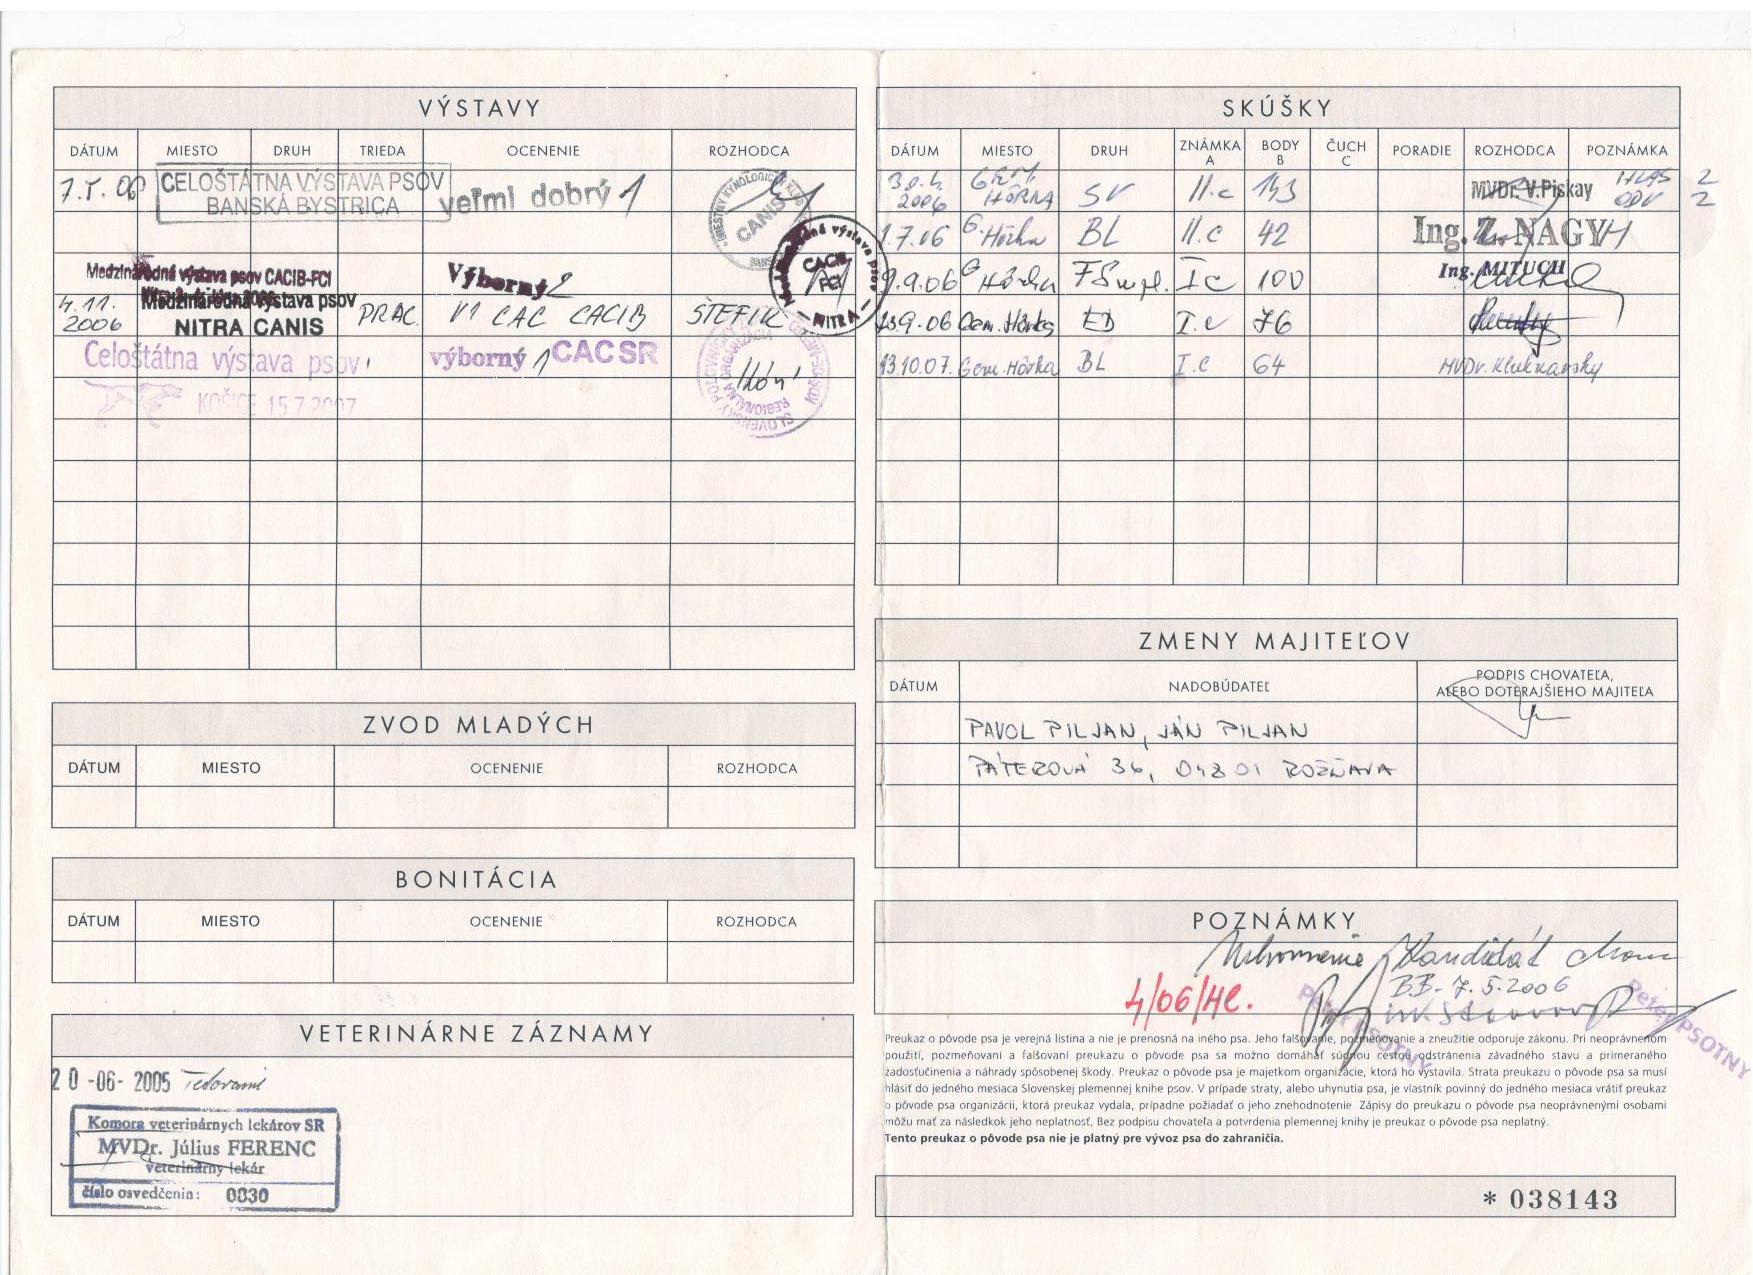 VÝSTAVY
DÁTUM MIESTO DRUH TRIEDA OCENENIE ROZHODCA
7.5.06 CELOŠTÁTNA VÝSTAVA PSOV
BANSKÁ BYSTRICA veľmi dobrý 1
CANIS
Medzinárodná výstava psov CACIB-FCI Výborný 2
Medzinárodná výstava psov CACIB FCI NITRA
4.11. Medzinárodná výstava psov
2006 NITRA CANIS PRAC. V1 CAC CACIB ŠTEFIK
Celoštátna výstava psov výborný 1 CAC SR
KOŠICE 15.7.2007
SLOVENSKÝ POĽOVNÍCKY
REGIONÁLNA ORGANIZÁCIA
ZVOD MLADÝCH
DÁTUM MIESTO OCENENIE ROZHODCA
BONITÁCIA
DÁTUM MIESTO OCENENIE ROZHODCA
VETERINÁRNE ZÁZNAMY
20-06-2005
Komora veterinárnych lekárov SR
MVDr. Július FERENC
veterinárny lekár
číslo osvedčenia: 0830
SKÚŠKY
DÁTUM MIESTO DRUH ZNÁMKA A BODY B ČUCH C PORADIE ROZHODCA POZNÁMKA
2006 GEM. HÔRKA SV II.c 143 MVDr. V. Piskay HLAS 2
ODV 2
1.7.06 G. Hôrka BL II.c 42 Ing. Z. NAGY
9.9.06 G Hôrka I c 100 Ing. MITUCH
Gem. Hôrka I.c 76
13.10.07. Gem. Hôrka BL I.c 64 MVDr. Kluknavský
ZMENY MAJITEĽOV
DÁTUM NADOBÚDATEĽ PODPIS CHOVATEĽA,
ALEBO DOTERAJŠIEHO MAJITEĽA
PAVOL PILJAN, JÁN PILJAN
PÁTEROVÁ 36, 048 01 ROŽŇAVA
POZNÁMKY
Kandidát
B.B. 7.5.2006
4/06/
Peter PSOTNÝ
Peter PSOTNÝ
Preukaz o pôvode psa je verejná listina a nie je prenosná na iného psa. Jeho falšovanie, pozmeňovanie a zneužitie odporuje zákonu. Pri neoprávnenom
použití, pozmeňovaní a falšovaní preukazu o pôvode psa sa možno domáhať súdnou cestou odstránenia závadného stavu a primeraného
zadosťučinenia a náhrady spôsobenej škody. Preukaz o pôvode psa je majetkom organizácie, ktorá ho vystavila. Strata preukazu o pôvode psa sa musí
hlásiť do jedného mesiaca Slovenskej plemennej knihe psov. V prípade straty, alebo uhynutia psa, je vlastník povinný do jedného mesiaca vrátiť preukaz
o pôvode psa organizácii, ktorá preukaz vydala, prípadne požiadať o jeho znehodnotenie. Zápisy do preukazu o pôvode psa neoprávnenými osobami
môžu mať za následok jeho neplatnosť. Bez podpisu chovateľa a potvrdenia plemennej knihy je preukaz o pôvode psa neplatný.
Tento preukaz o pôvode psa nie je platný pre vývoz psa do zahraničia.
* 038143